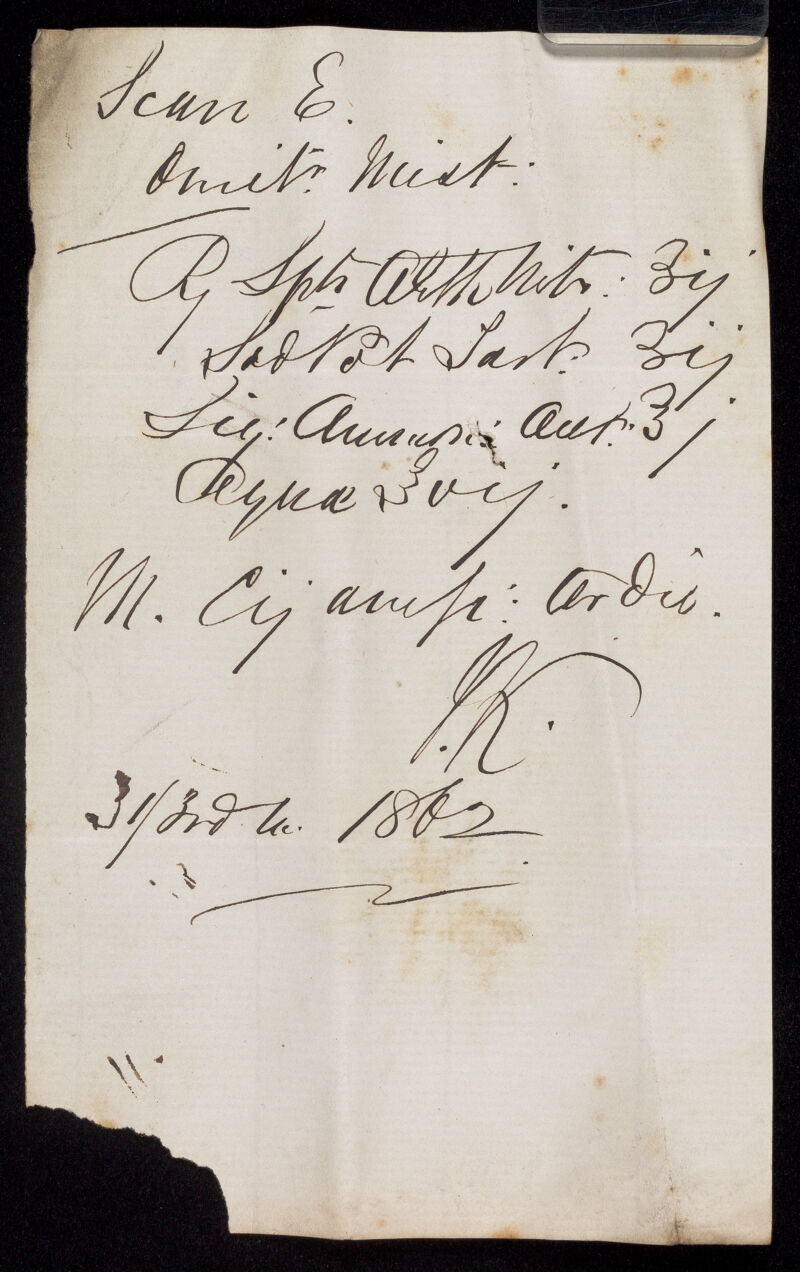 Scarr E.
Omitr. Mist:
Rx Spts Æth Nitr: ʒij
Sod Pot Tart. ʒij
Liq: Ammon: Acet: ʒj
Aquæ ʒvij.
M. Cij ampl: ter die.
J.K.
31/3rd m. 1862